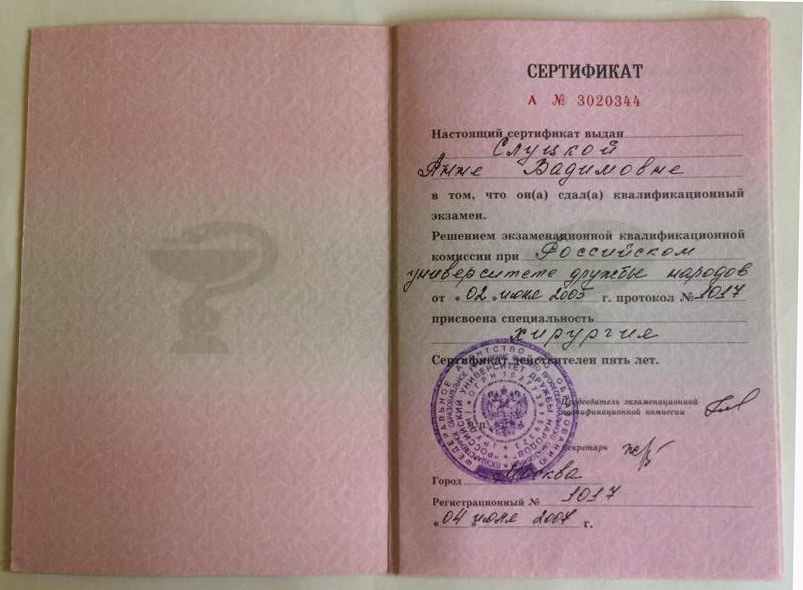 СЕРТИФИКАТ
А № 3020344
Настоящий сертификат выдан
Слуцкой
Анне Вадимовне
в том, что он(а) сдал(а) квалификационный
экзамен.
Решением экзаменационной квалификационной
комиссии при Российском
университете дружбы народов
от «02» июня 2005 г. протокол № 1017
присвоена специальность
хирургия
Сертификат действителен пять лет.
Председатель экзаменационной
квалификационной комиссии
М.П.
Секретарь
Город Москва
Регистрационный № 1017
«04 июня 2007 г.